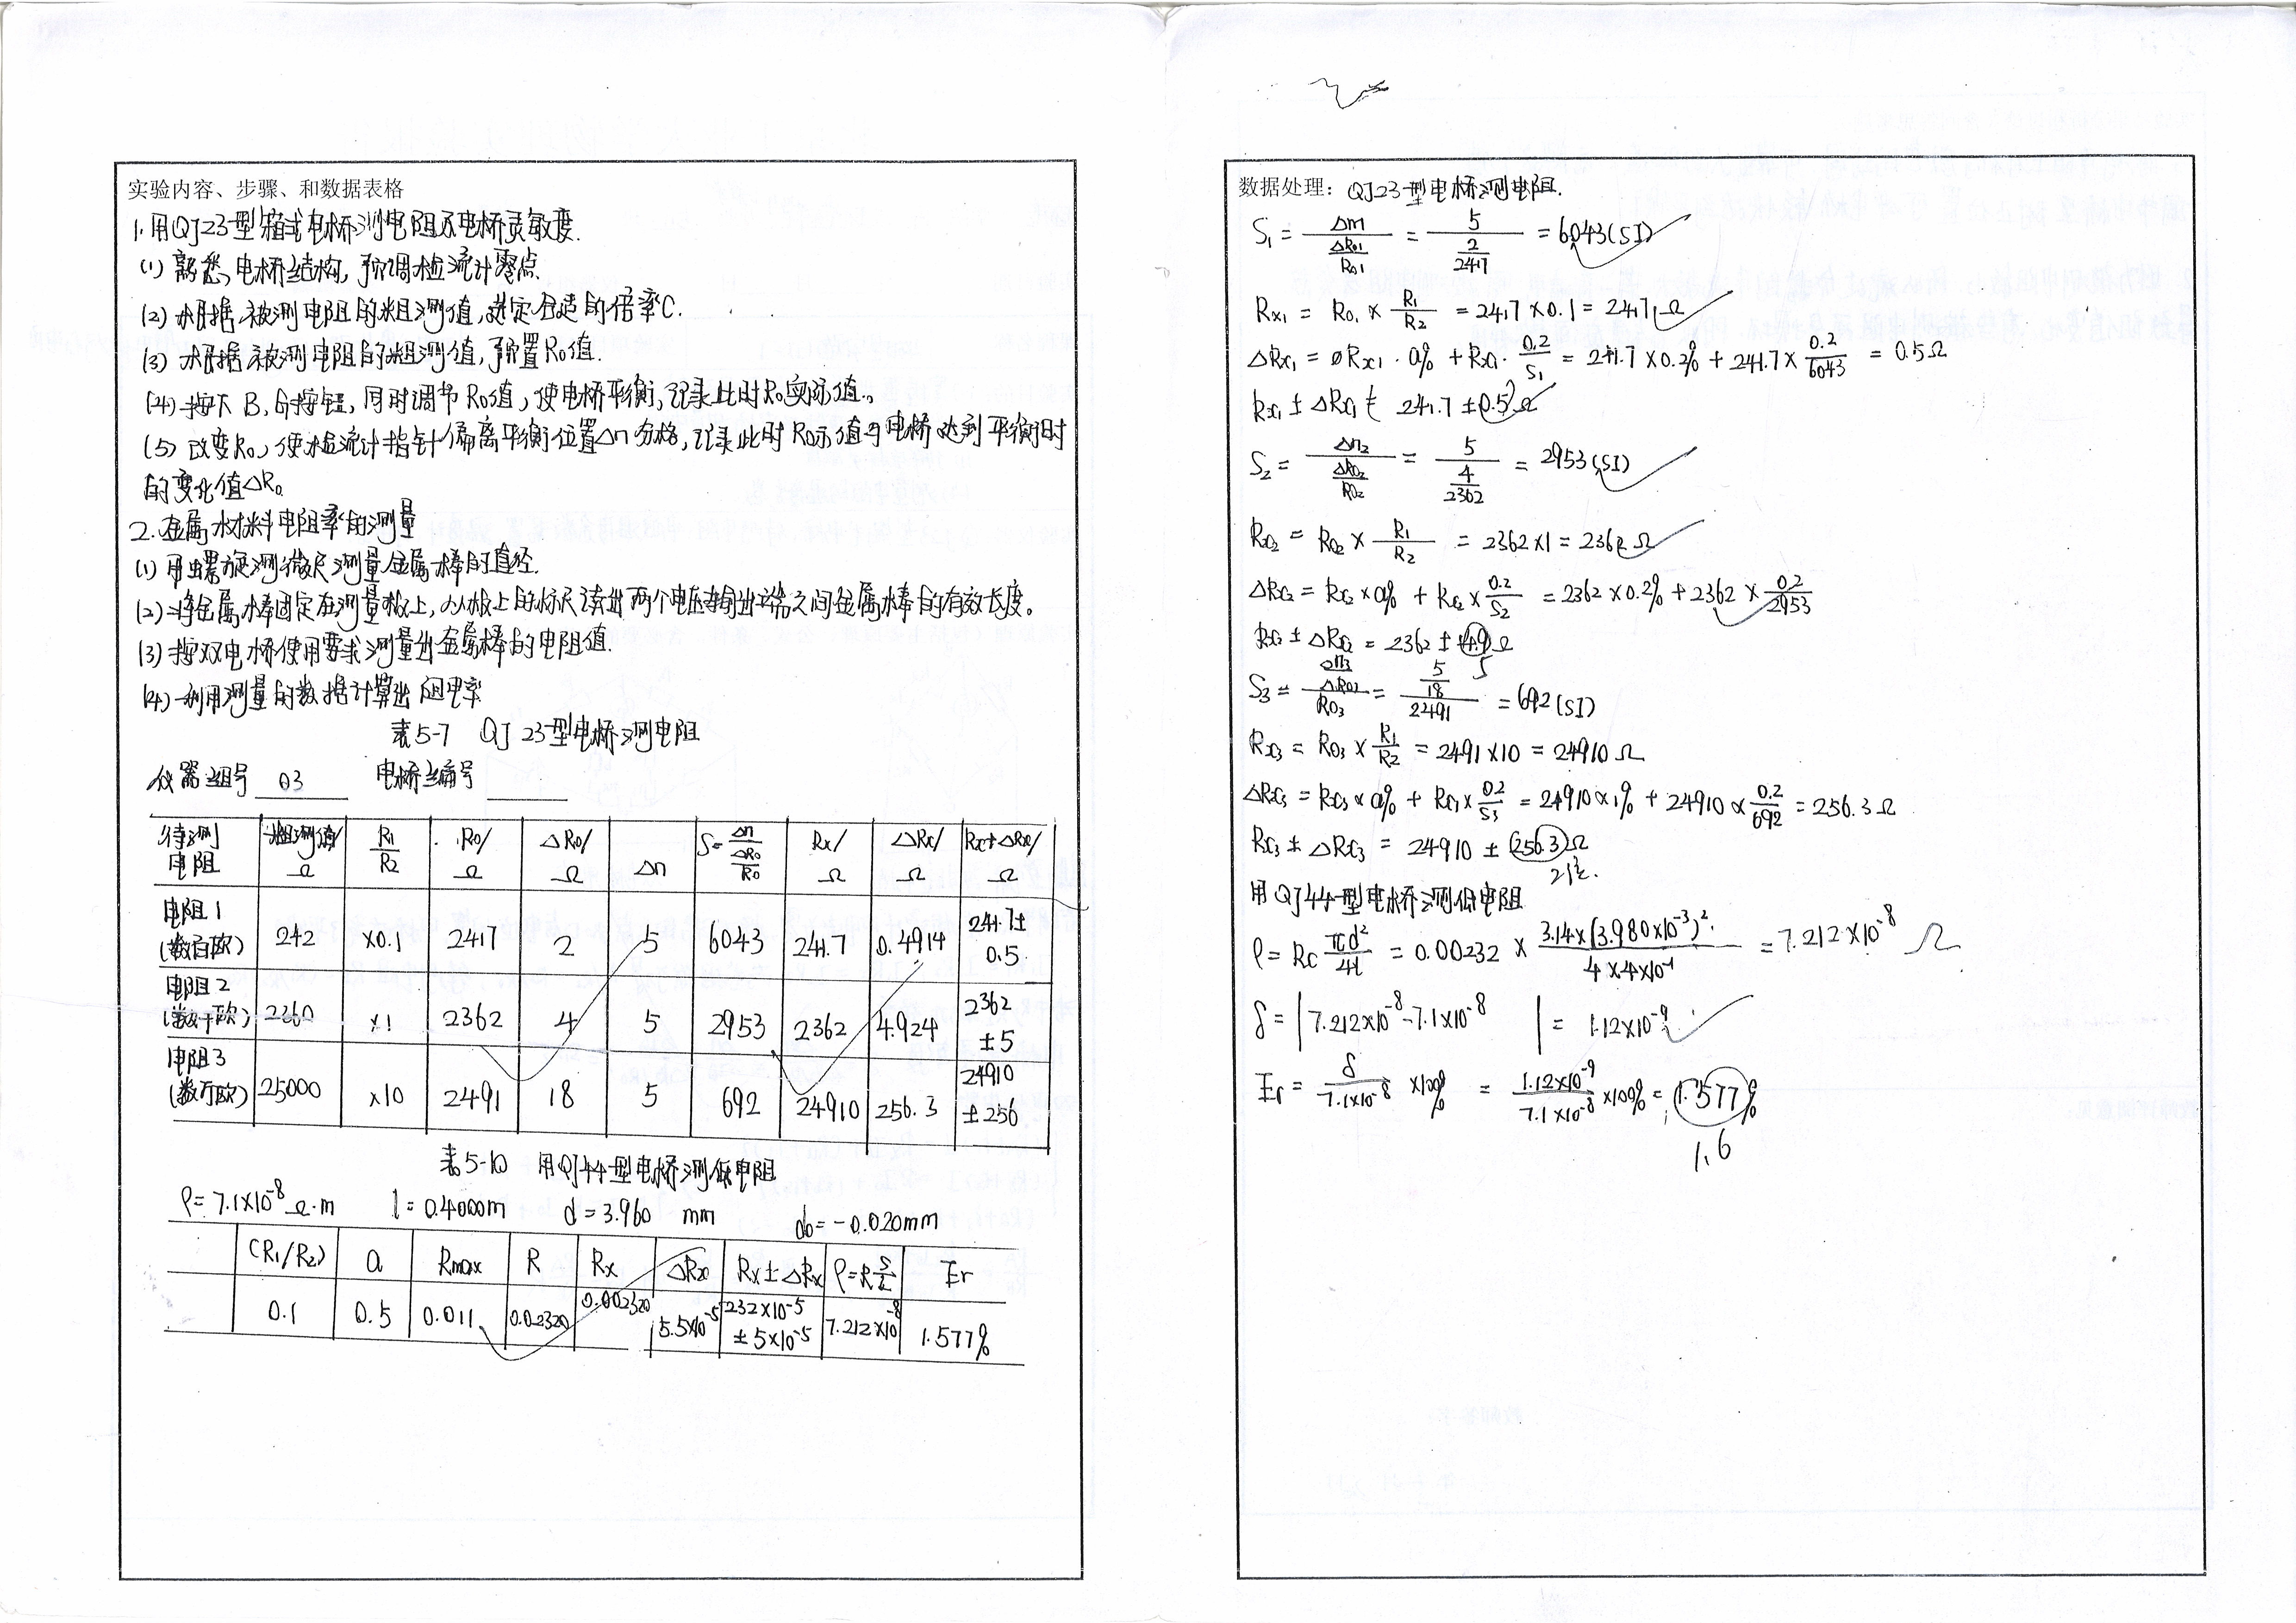 实验内容、步骤、和数据表格
1.用QJ23型箱式电桥测电阻及电桥灵敏度.
(1) 熟悉电桥结构,预调检流计零点.
(2) 根据被测电阻的粗测值,选定合适的倍率C.
(3) 根据被测电阻的粗测值,预置R₀值.
(4) 按下B,G按钮,同时调节R₀值,使电桥平衡,记录此时R₀实际值.
(5) 改变R₀,使检流计指针偏离平衡位置Δn分格,记录此时R₀示值与电桥达到平衡时
的变化值ΔR₀
2.金属材料电阻率的测量
(1) 用螺旋测微尺测量金属棒的直径.
(2) 将金属棒固定在测量板上,从板上的标尺读出两个电压输出端之间金属棒的有效长度。
(3) 按双电桥使用要求测量出金属棒的电阻值.
(4) 利用测量的数据计算出电阻率
表5-7 QJ23型电桥测电阻
仪器组号 03 电桥编号
待测电阻 粗测值/Ω R₁/R₂ R₀/Ω ΔR₀/Ω Δn S=Δn/(ΔR₀/R₀) Rx/Ω ΔRx/Ω Rx±ΔRx/Ω
电阻1 (数百欧) 242 ×0.1 2417 2 5 6043 241.7 0.4914 241.7±0.5
电阻2 (数千欧) 2360 ×1 2362 4 5 2953 2362 4.924 2362±5
电阻3 (数万欧) 25000 ×10 2491 18 5 692 24910 256.3 24910±256
表5-10 用QJ44型电桥测低电阻
ρ=7.1×10⁻⁸Ω·m l=0.4000m d=3.960 mm d₀=-0.020mm
(R₁/R₂) a Rmax R Rx ΔRx Rx±ΔRx ρ=R S/L Er
0.1 0.5 0.011 0.02320 0.002320 5.5×10⁻⁵ 232×10⁻⁵±5×10⁻⁵ 7.212×10⁻⁸ 1.577%
数据处理: QJ23型电桥测电阻.
S₁ = Δn₁/(ΔR₀₁/R₀₁) = 5/(2/2417) = 6043(SI)
Rx₁ = R₀₁ × R₁/R₂ = 241.7×0.1 = 24.71Ω
ΔRx₁ = Rx₁·a% + Rx₁·0.2/S₁ = 241.7×0.2% + 241.7×0.2/6043 = 0.5Ω
Rx₁ ± ΔRx₁ = 241.7 ± 0.5Ω
S₂ = Δn₂/(ΔR₀₂/R₀₂) = 5/(4/2362) = 2953(SI)
Rx₂ = R₀₂ × R₁/R₂ = 2362×1 = 2362Ω
ΔRx₂ = Rx₂×a% + Rx₂×0.2/S₂ = 2362×0.2% + 2362×0.2/2953
Rx₂ ± ΔRx₂ = 2362 ± 4.9Ω
5
S₃ = Δn₃/(ΔR₀₃/R₀₃) = 5/(18/2491) = 692(SI)
Rx₃ = R₀₃ × R₁/R₂ = 2491×10 = 24910Ω
ΔRx₃ = Rx₃×a% + Rx₁×0.2/S₃ = 24910×1% + 24910×0.2/692 = 256.3Ω
Rx₃ ± ΔRx₃ = 24910 ± 256.3Ω
用QJ44型电桥测低电阻
ρ = Rx πd²/4l = 0.00232 × 3.14×(3.980×10⁻³)²/(4×4×10⁻¹) = 7.212×10⁻⁸ Ω
δ = |7.212×10⁻⁸-7.1×10⁻⁸| = 1.12×10⁻⁹
Er = δ/(7.1×10⁻⁸) ×100% = 1.12×10⁻⁹/(7.1×10⁻⁸) ×100% = 1.577%
1.6